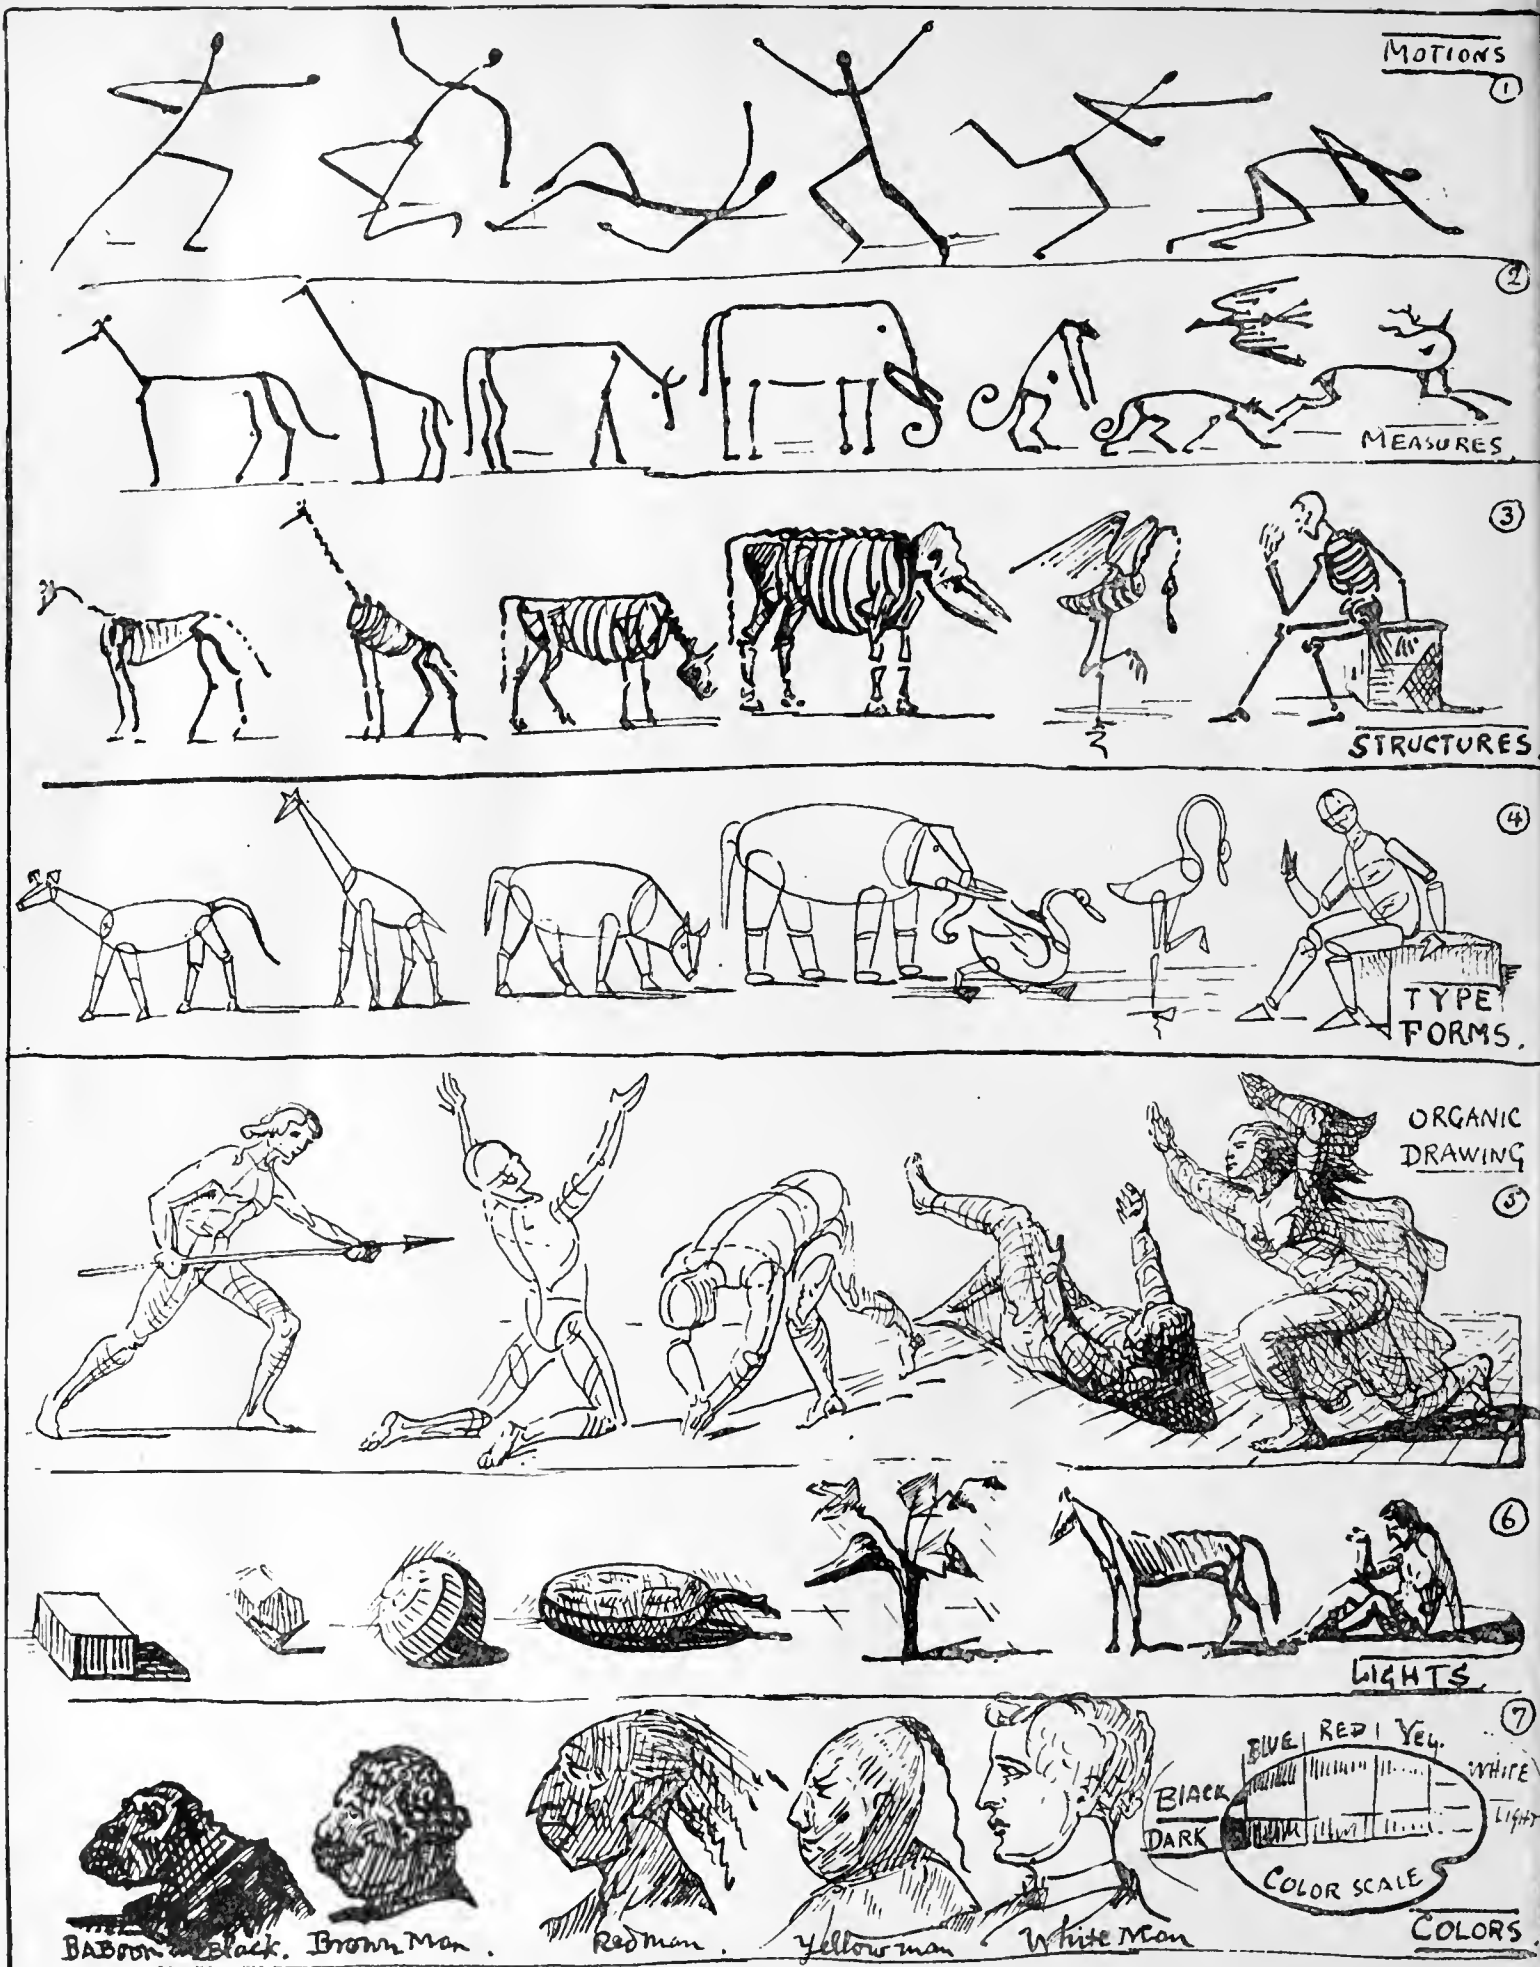 MOTIONS
1
2
MEASURES.
3
STRUCTURES.
4
TYPE
FORMS.
ORGANIC
DRAWING
5
6
LIGHTS.
7
BLUE RED Yel.
WHITE
BLACK
LIGHT
DARK
COLOR SCALE
COLORS.
BABoon Black. Brown Man. Red man. Yellow man White Man